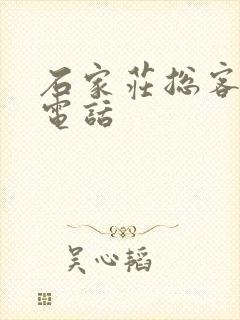 石家莊總客
電話
吴心韬